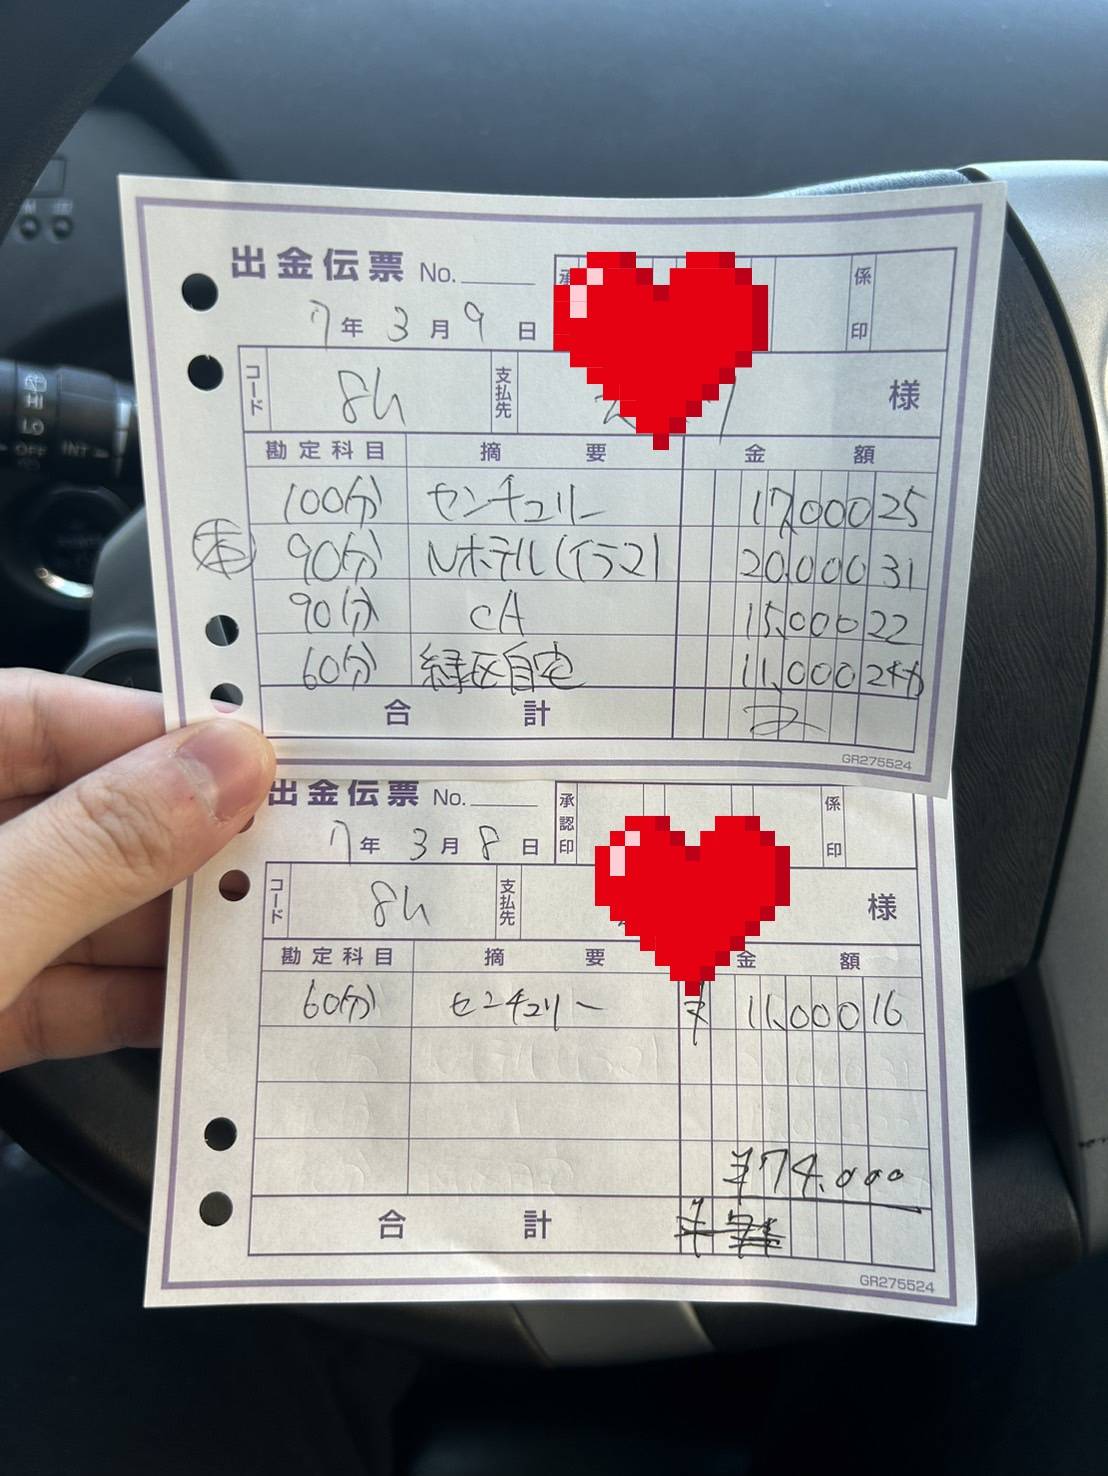 出金伝票 No.
7年 3月 9日
係印
コード 8h 支払先 様
勘定科目 摘要 金額
100分 センチュリー 17,000 25
本 90分 Nホテル(イラマ) 20,000 31
90分 CA 15,000 22
60分 緑区自宅 11,000 24
合計
GR275524
出金伝票 No.
7年 3月 8日
承認印 係印
コード 8h 支払先 様
勘定科目 摘要 金額
60分 センチュリー 11,000 16
¥74,000
合計
GR275524
HI
LO
OFF INT